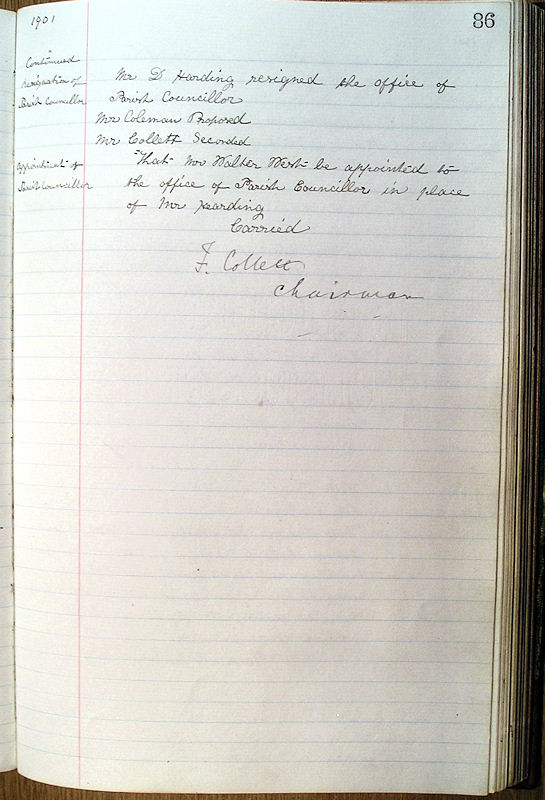 1901
86
Continued
Resignation of
Parish Councillor
Mr D Harding resigned the office of
Parish Councillor
Mr Coleman Proposed
Mr Collett Seconded
Appointment of
Parish Councillor
That Mr Walter West be appointed to
the office of Parish Councillor in place
of Mr Harding
Carried
F. Collett
Chairman